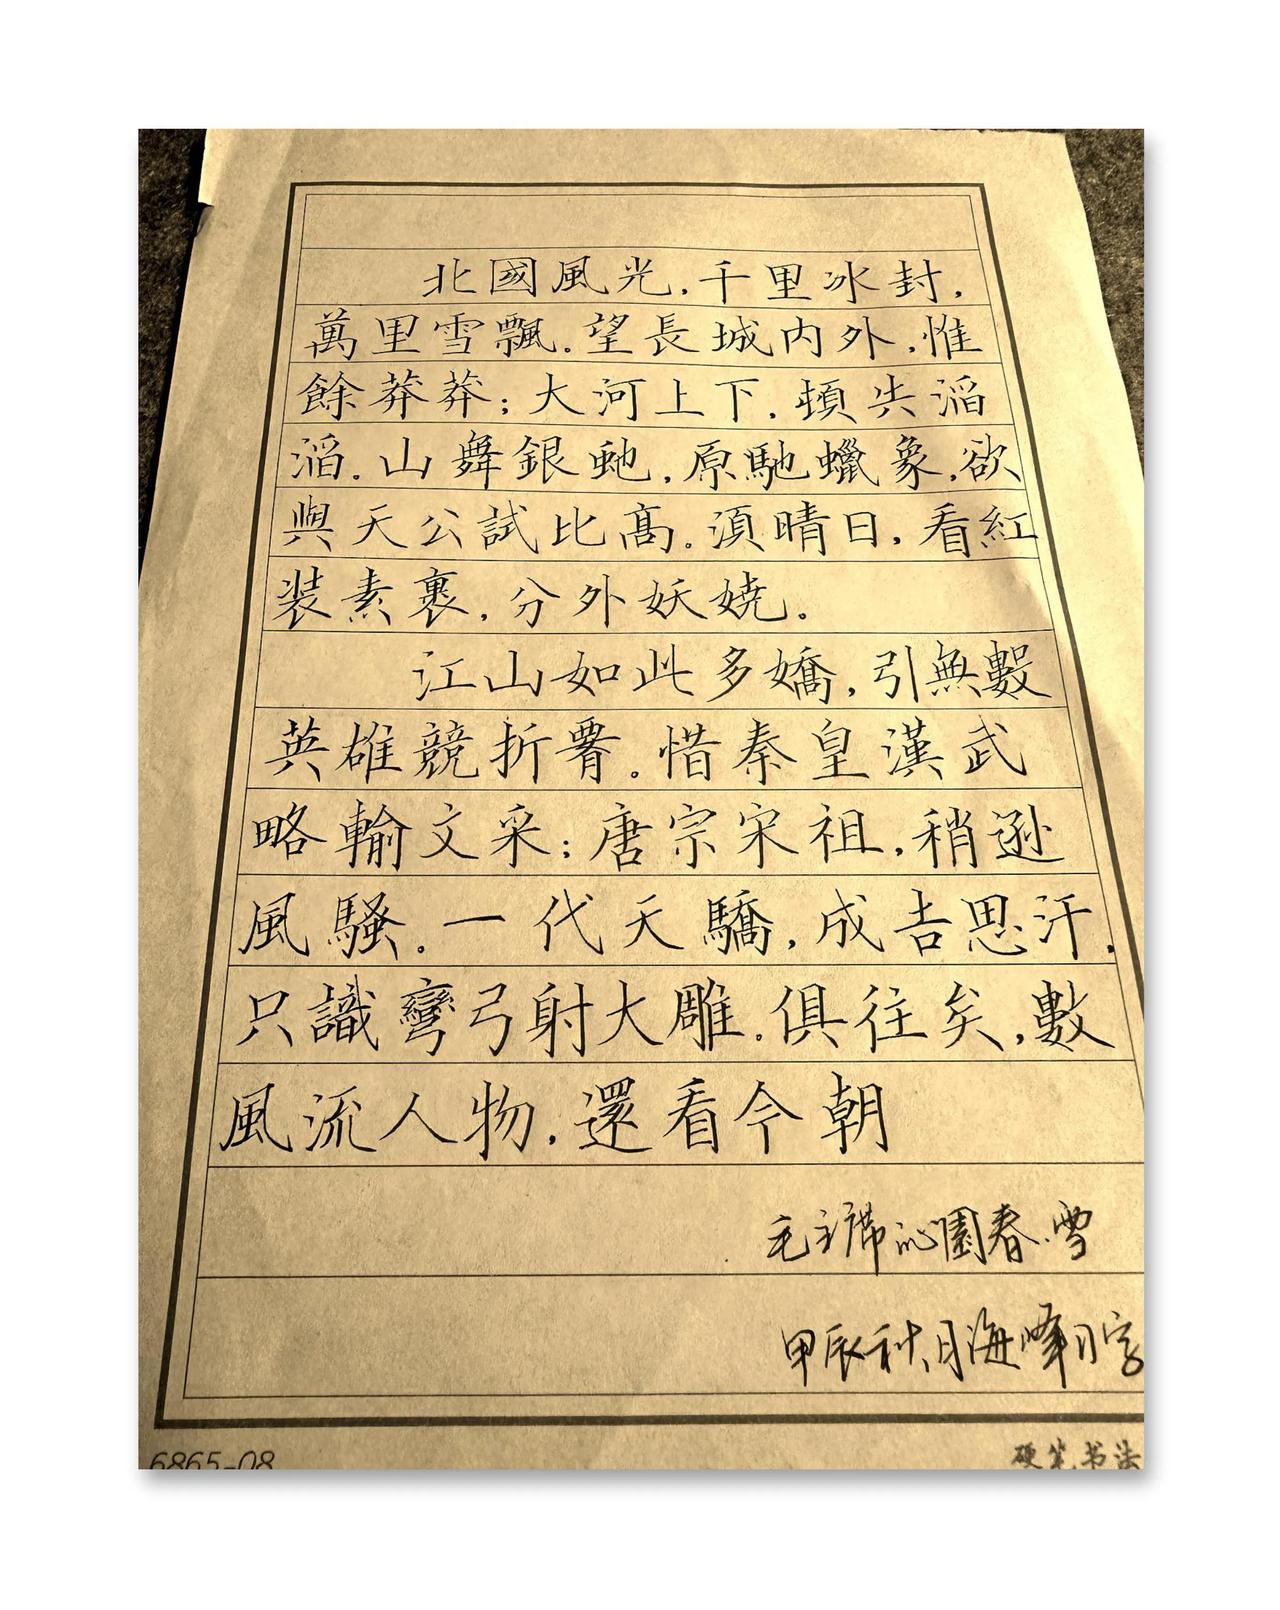 北國風光，千里冰封，
萬里雪飄。望長城内外，惟
餘莽莽；大河上下，頓失滔
滔。山舞銀虵，原馳蠟象，欲
與天公試比高。須晴日，看紅
裝素裹，分外妖嬈。
江山如此多嬌，引無數
英雄競折 。惜秦皇漢武
略輸文采；唐宗宋祖，稍遜
風騷。一代天驕，成吉思汗，
只識彎弓射大雕。俱往矣，數
風流人物，還看今朝
毛主席沁園春.雪
甲辰秋月海峰 字
6865-08
硬笔书法